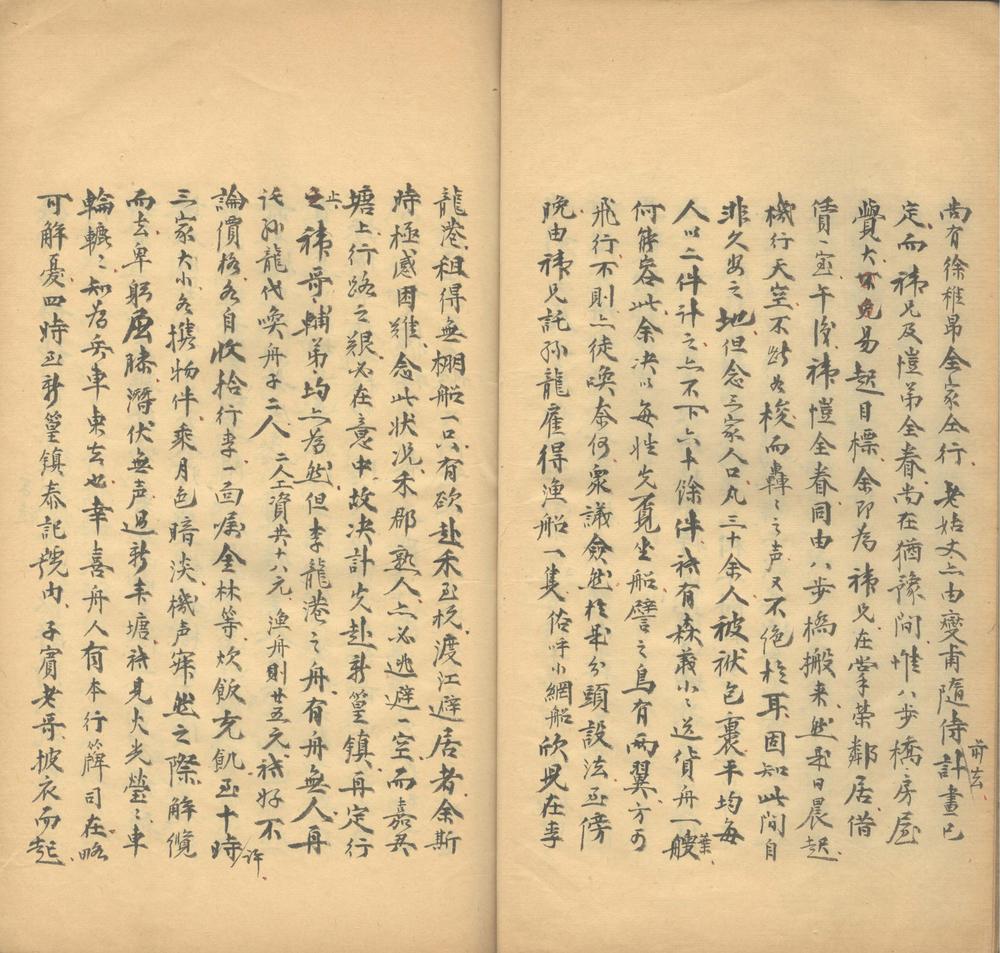 尚有徐稚昂全家仝行老姑丈亦由燮甫隨侍前去計畫已
定而祎兄及愷弟全眷尚在猶豫間惟八步橋房屋
覺大不免易起目標余即為祎兄在掌荣鄰居借
賃一室午後祎愷全眷同由八步橋搬来然是日晨起
機行天空不断如梭而轟〻之声又不絶於耳固知此間自
非久安之地但念三家人口凡三十余人被袱包裹平均每
人以二件计之亦不下六十餘件祗有森義小〻送貨舟一葉艘
何能容此余决以毎姓先覓坐船譬之鳥有兩翼方可
飛行不則亦徒喚奈何衆議僉然於是分頭設法至傍
晚由祎兄託孫龍雇得漁船一隻俗呼小網船欣然在李
龍港租得無棚船一只有欲赴禾至杭渡江避居者余斯
時極感困難念此状况禾郡熟人亦必逃避一空而嘉興
塘上行路之艱必在意中故决計先赴新篁鎮再定行
止祎哥輔弟均亦為然但李龍港之舟有舟無人再
託孫龍代喚舟子二人二人工資共十八元漁舟則廿五元祗好不
論價格各自收拾行李一面嘱全林等炊飯充飢至十時許
三家大小各携物件乘月色暗淡機声寂然之際解纜
而去卑躬屈膝潛伏無声過新丰塘祗見火光螢〻車
輪轆〻知為兵車東去也幸喜舟人有本行簰司在略
可解憂四時至新篁鎮泰記號内子賓老哥披衣而起